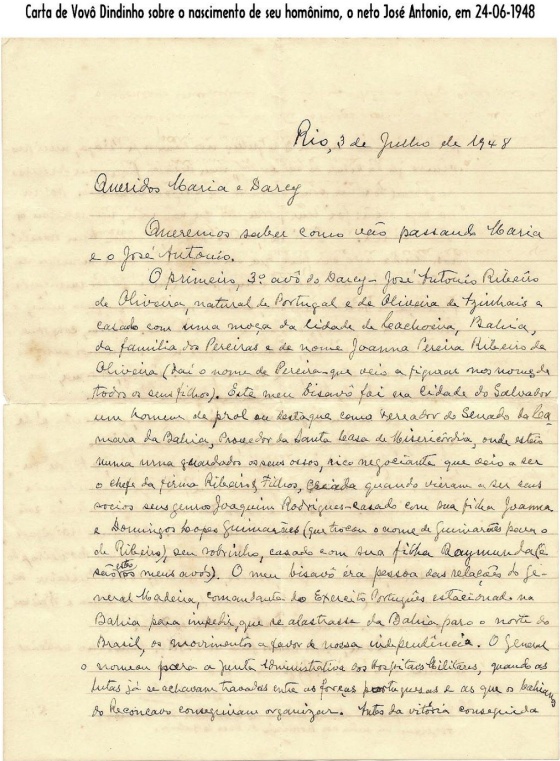 Carta de Vovô Dindinho sobre o nascimento de seu homônimo, o neto José Antonio, em 24-06-1948
Rio, 3 de Julho de 1948
Queridos Maria e Darcy
Queremos saber como vão passando Maria
e o José Antonio.
O primeiro, 3º avô do Darcy - José Antonio Ribeiro
de Oliveira, natural de Portugal e de Oliveira de Azinhais e
casado com uma moça da cidade de Cachoeira, Bahia,
da familia dos Pereiras e de nome Joanna Pereira Ribeiro de
Oliveira (daí o nome de Pereira que veio a figurar nos nomes de
todos os seus filhos). Este meu bisavô foi na cidade do Salvador
um homem de prol ou destaque como vereador do Senado da Ca-
mara da Bahia, Provedor da Santa Casa de Misericórdia, onde estão
numa urna guardados os seus ossos, rico negociante que veio a ser
o chefe da firma Ribeiro & Filhos, creada quando vieram a ser seus
socios seu genro Joaquim Rodrigues - casado com sua filha Joanna
e Domingos Lopes Guimarães (que trocou o nome de Guimarães para o
de Ribeiro), seu sobrinho, casado com sua filha Raymunda (e
são estes meus avós). O meu bisavô éra pessoa das relações do Ge-
neral Madeira, comandante do Exercito Português estacionado na
Bahia para impedir, que se alastrasse da Bahia para o norte do
Brasil, os movimentos a favor de nossa independência. O General
o nomeou para a Junta Administrativa dos Hospitais Militares, quando as
lutas já se achavam travadas entre as forças portuguesas e as que os bahianos
do Reconcavo conseguiram organizar. Antes da vitória conseguida